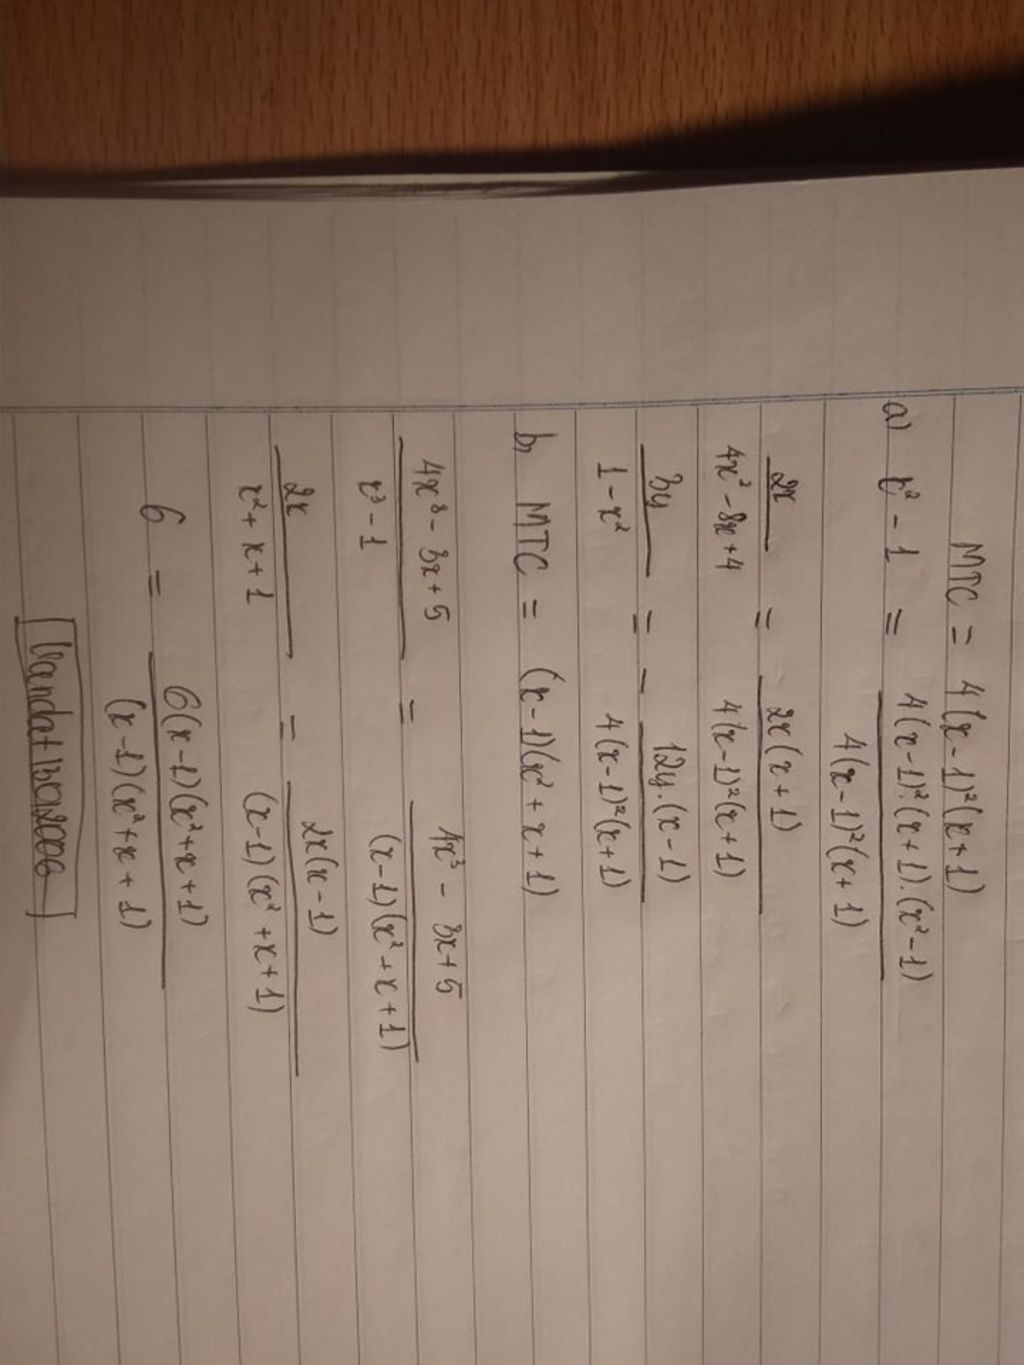 MTC = 4(x-1)²(x+1)
a) x² - 1 = 4(x-1)²(x+1).(x²-1)
4(x-1)²(x+1)
2x = 2x(x+1)
4x² - 8x + 4 4(x-1)²(x+1)
3y = - 12y.(x-1)
1 - x² 4(x-1)²(x+1)
b, MTC = (x-1)(x² + x + 1)
4x³ - 3x + 5 = 4x³ - 3x + 5
x³ - 1 (x-1)(x² + x + 1)
2x = 2x(x-1)
x² + x + 1 (x-1)(x² + x + 1)
6 = 6(x-1)(x²+x+1)
(x-1)(x²+x+1)